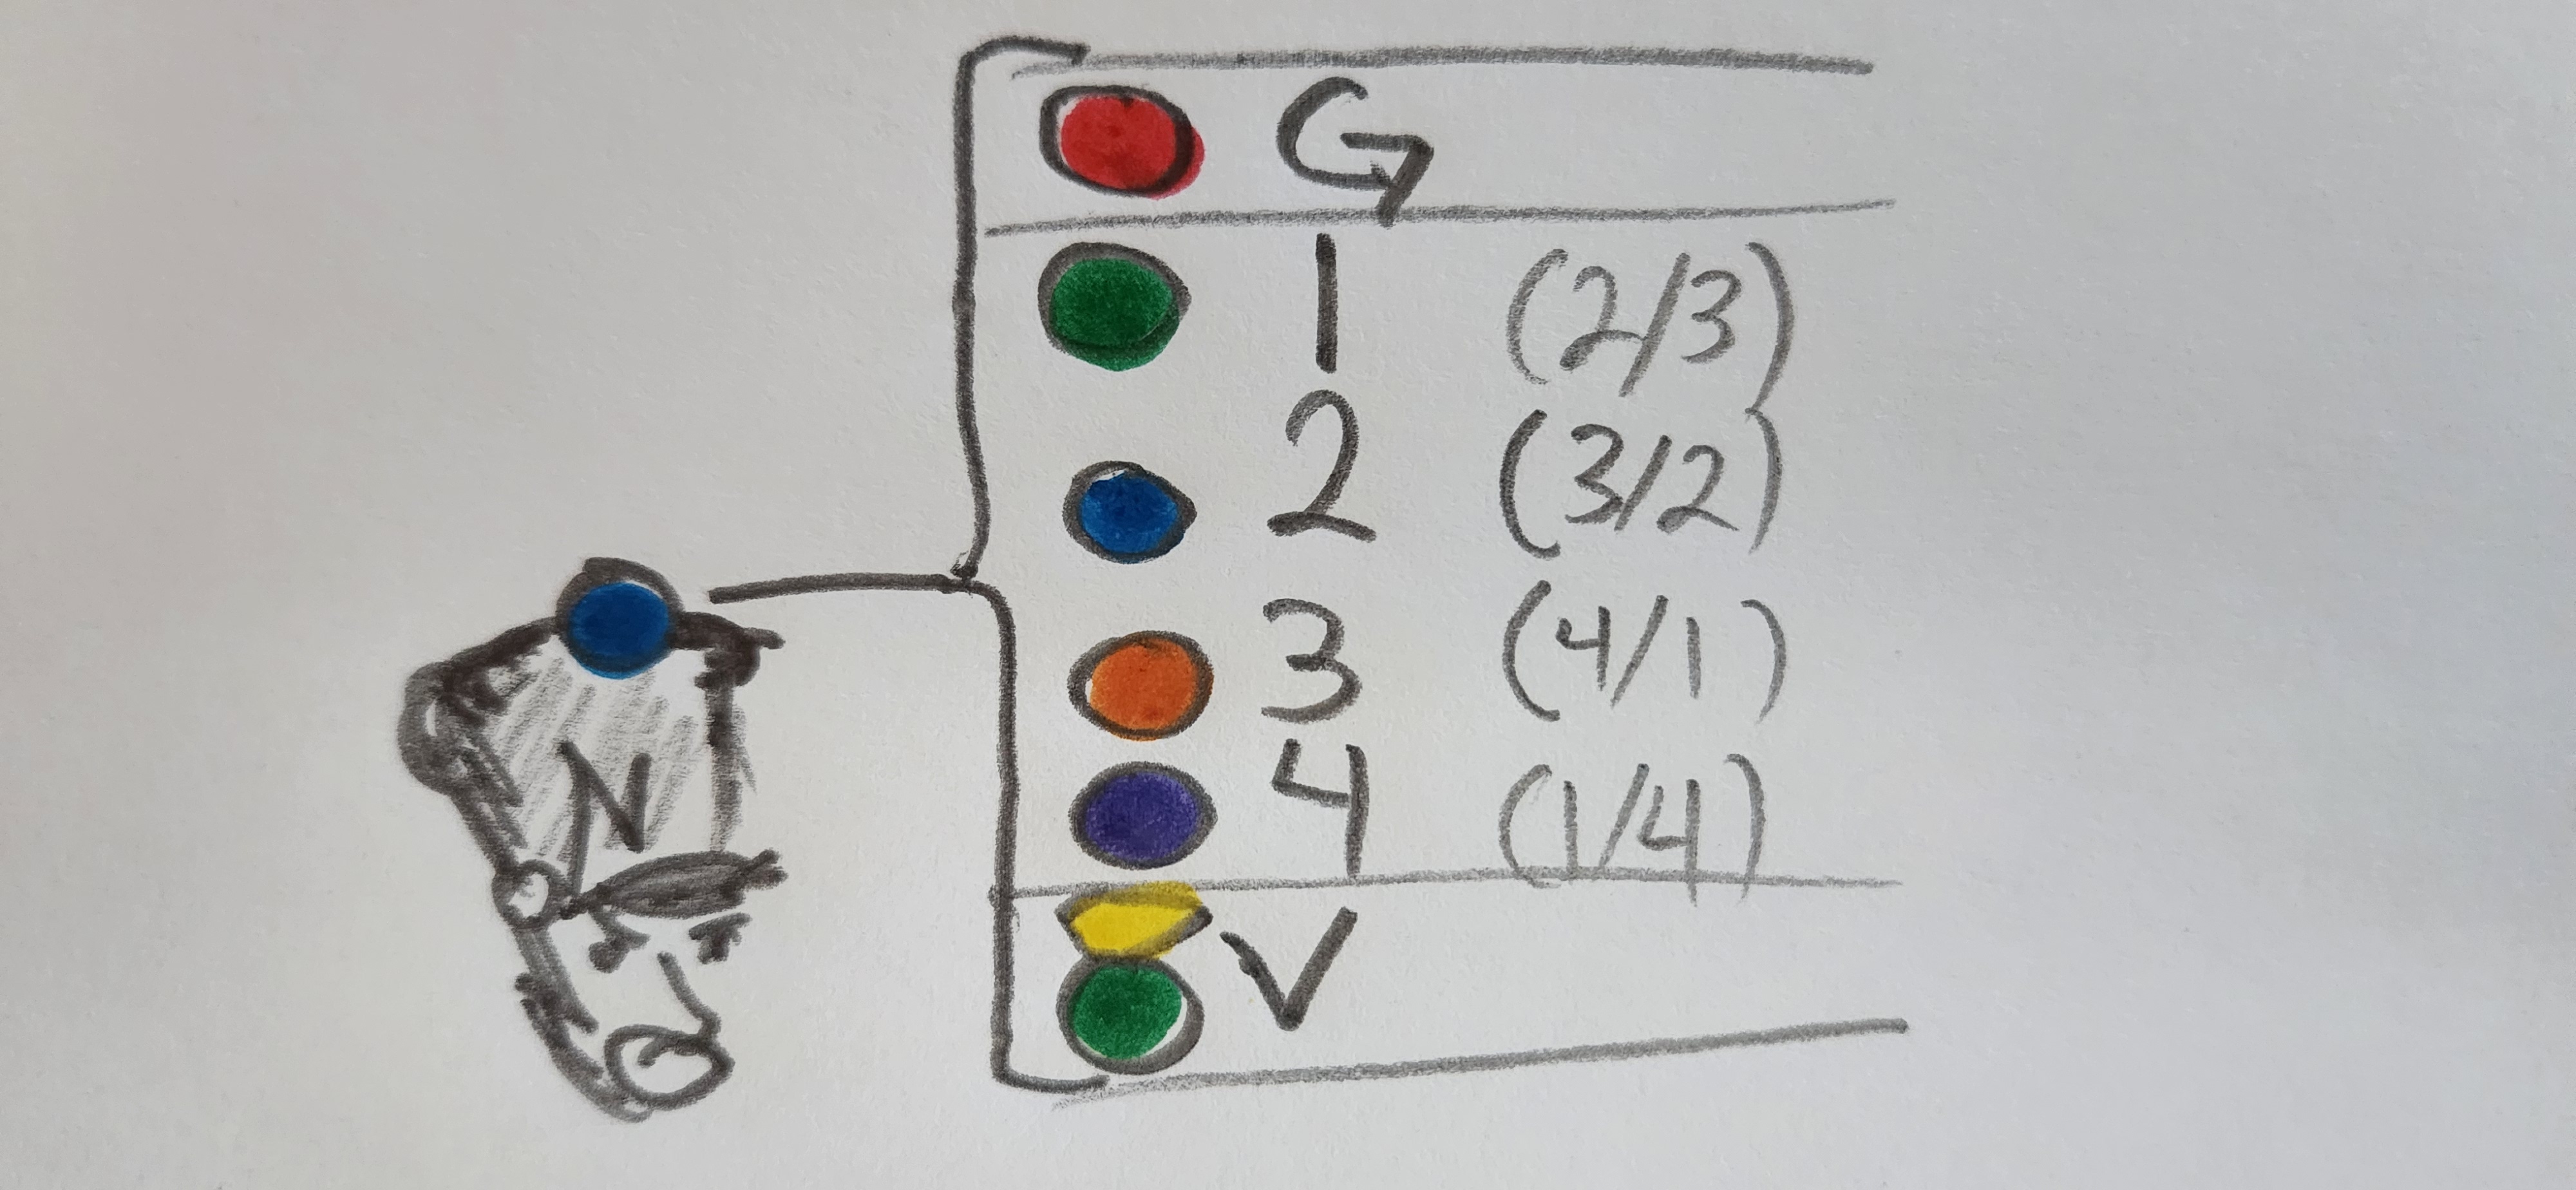 N
G
1 (2/3)
2 (3/2)
3 (4/1)
4 (1/4)
V